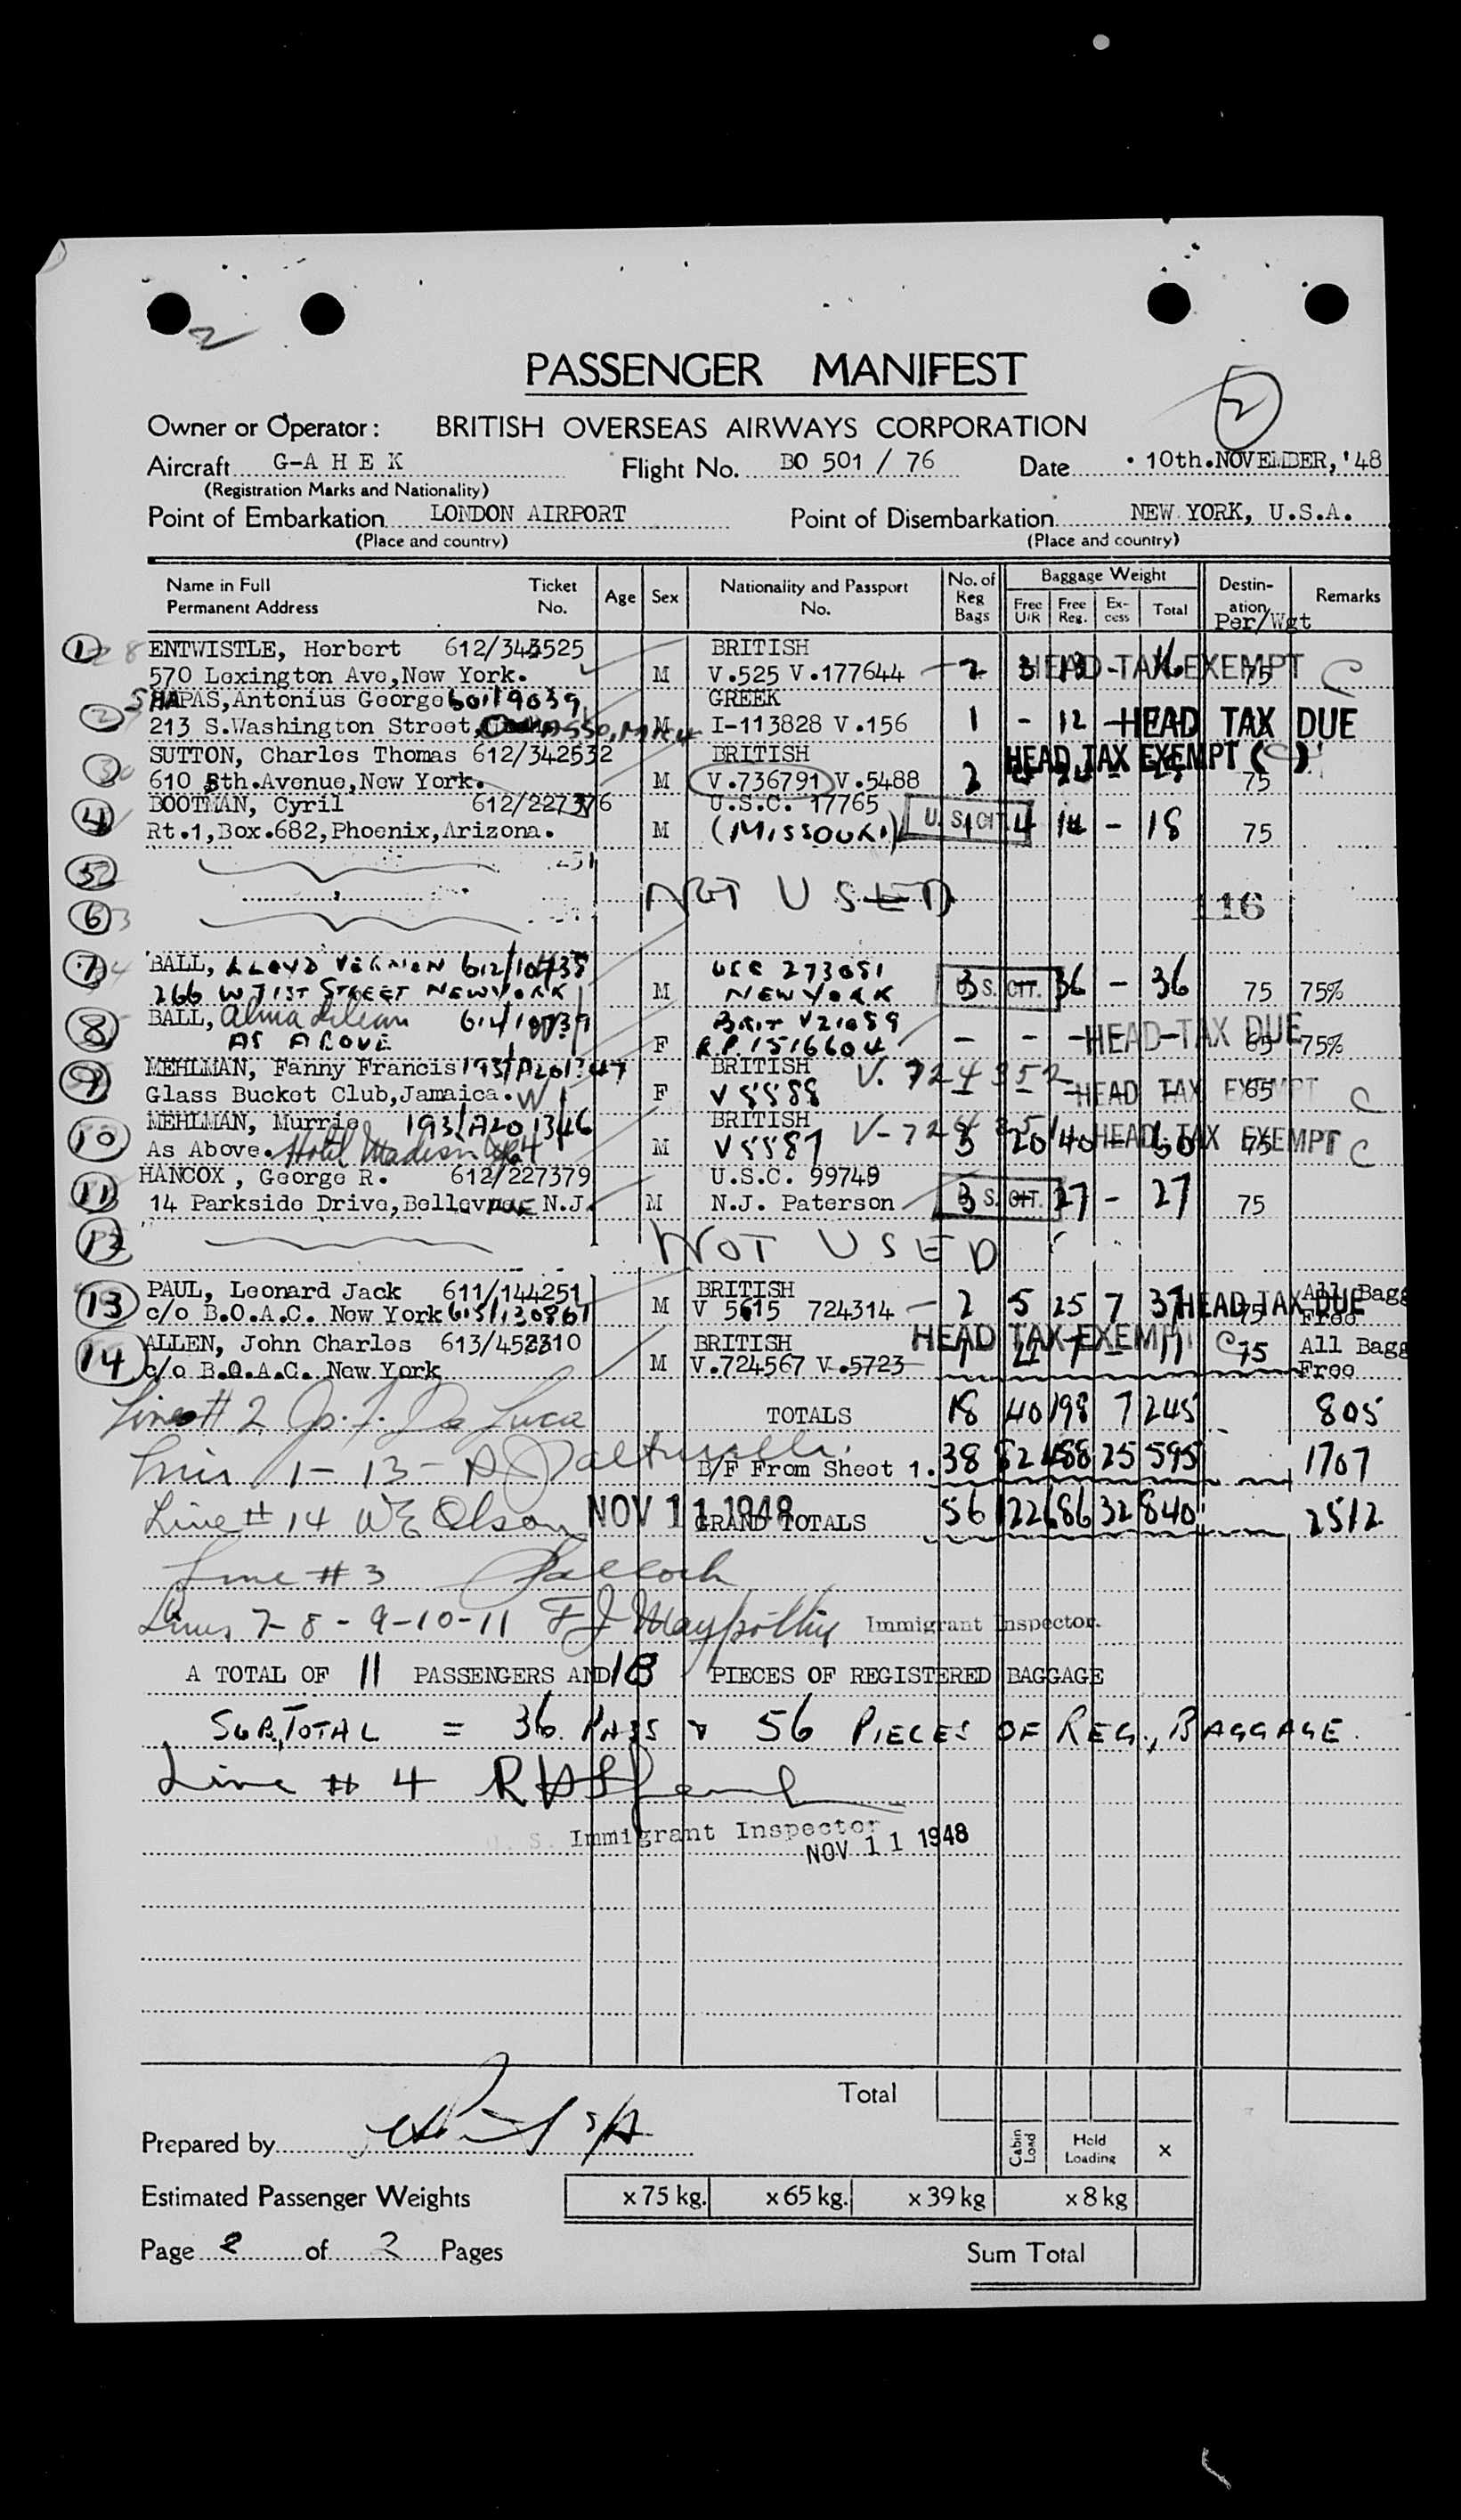 2
PASSENGER MANIFEST
2
Owner or Operator: BRITISH OVERSEAS AIRWAYS CORPORATION
Aircraft G-A H E K Flight No. BO 501 / 76 Date 10th.NOVEMBER,'48
(Registration Marks and Nationality)
Point of Embarkation LONDON AIRPORT Point of Disembarkation NEW YORK, U.S.A.
(Place and country) (Place and country)
Name in Full Ticket Age Sex Nationality and Passport No. of Baggage Weight Destin- Remarks
Permanent Address No. No. Reg Bags Free U/R Free Reg. Ex-cess Total ation Per/Wgt
1 ENTWISTLE, Herbert 612/343525 BRITISH
570 Lexington Ave,New York. M V.525 V.177644 2 3 13 - 16 75 HEAD TAX EXEMPT C
2 PAPAS,Antonius George 601/9039 GREEK
213 S.Washington Street, M I-113828 V.156 1 - 12 - HEAD TAX DUE
3 SUTTON, Charles Thomas 612/342532 BRITISH HEAD TAX EXEMPT (C)
610 5th.Avenue,New York. M V.736791 V.5488 2 75
4 BOOTMAN, Cyril 612/227376 U.S.C. 17765
Rt.1,Box.682,Phoenix,Arizona. M (MISSOURI) U.S. CIT. 1 4 14 - 18 75
5
NOT USED 116
6
7 BALL, LLOYD VERNON 612/10438 USC 273051
266 W 71ST STREET NEW YORK M NEW YORK U.S. CIT. 3 36 - 36 75 75%
8 BALL, Alma Lilian 612/10439 BRIT V21059
AS ABOVE F R.P. 1516604 - - - HEAD TAX DUE 65 75%
9 MEHLMAN, Fanny Francis 193/A201347 BRITISH V. 724352
Glass Bucket Club,Jamaica. W I F V 5588 - - - HEAD TAX EXEMPT 65 C
10 MEHLMAN, Murrie 193/A201346 BRITISH
As Above. Hotel Madison M V5587 3 20 40 - 60 HEAD TAX EXEMPT 75 C
11 HANCOX, George R. 612/227379 U.S.C. 99749
14 Parkside Drive,Belleville N.J. M N.J. Paterson U.S. CIT. 3 - 27 - 27 75
12 NOT USED
13 PAUL, Leonard Jack 611/144251 BRITISH All Bagg
c/o B.O.A.C. New York 615/130861 M V 5615 724314 2 5 25 7 37 HEAD TAX DUE 75 Free
14 ALLEN, John Charles 613/452310 BRITISH HEAD TAX EXEMPT C All Bagg
c/o B.O.A.C. New York M V.724567 V.5723 1 4 7 - 11 75 Free
Line # 2 Jo. F. De Luca TOTALS 18 40 198 7 245 805
Lines 1-13- B/F From Sheet 1. 38 82 488 25 595 1707
Line # 14 WE Olson NOV 11 1948 GRAND TOTALS 56 122 686 32 840 2512
Line # 3
Lines 7-8-9-10-11 FJ Immigrant Inspector.
A TOTAL OF 11 PASSENGERS AND 18 PIECES OF REGISTERED BAGGAGE
SUB,TOTAL = 36 PASS & 56 PIECES OF REG., BAGGAGE.
Line # 4
U. S. Immigrant Inspector
NOV 11 1948
Total
Prepared by Cabin Load Hold Loading x
Estimated Passenger Weights x 75 kg. x 65 kg. x 39 kg x 8 kg
Page 2 of 2 Pages Sum Total